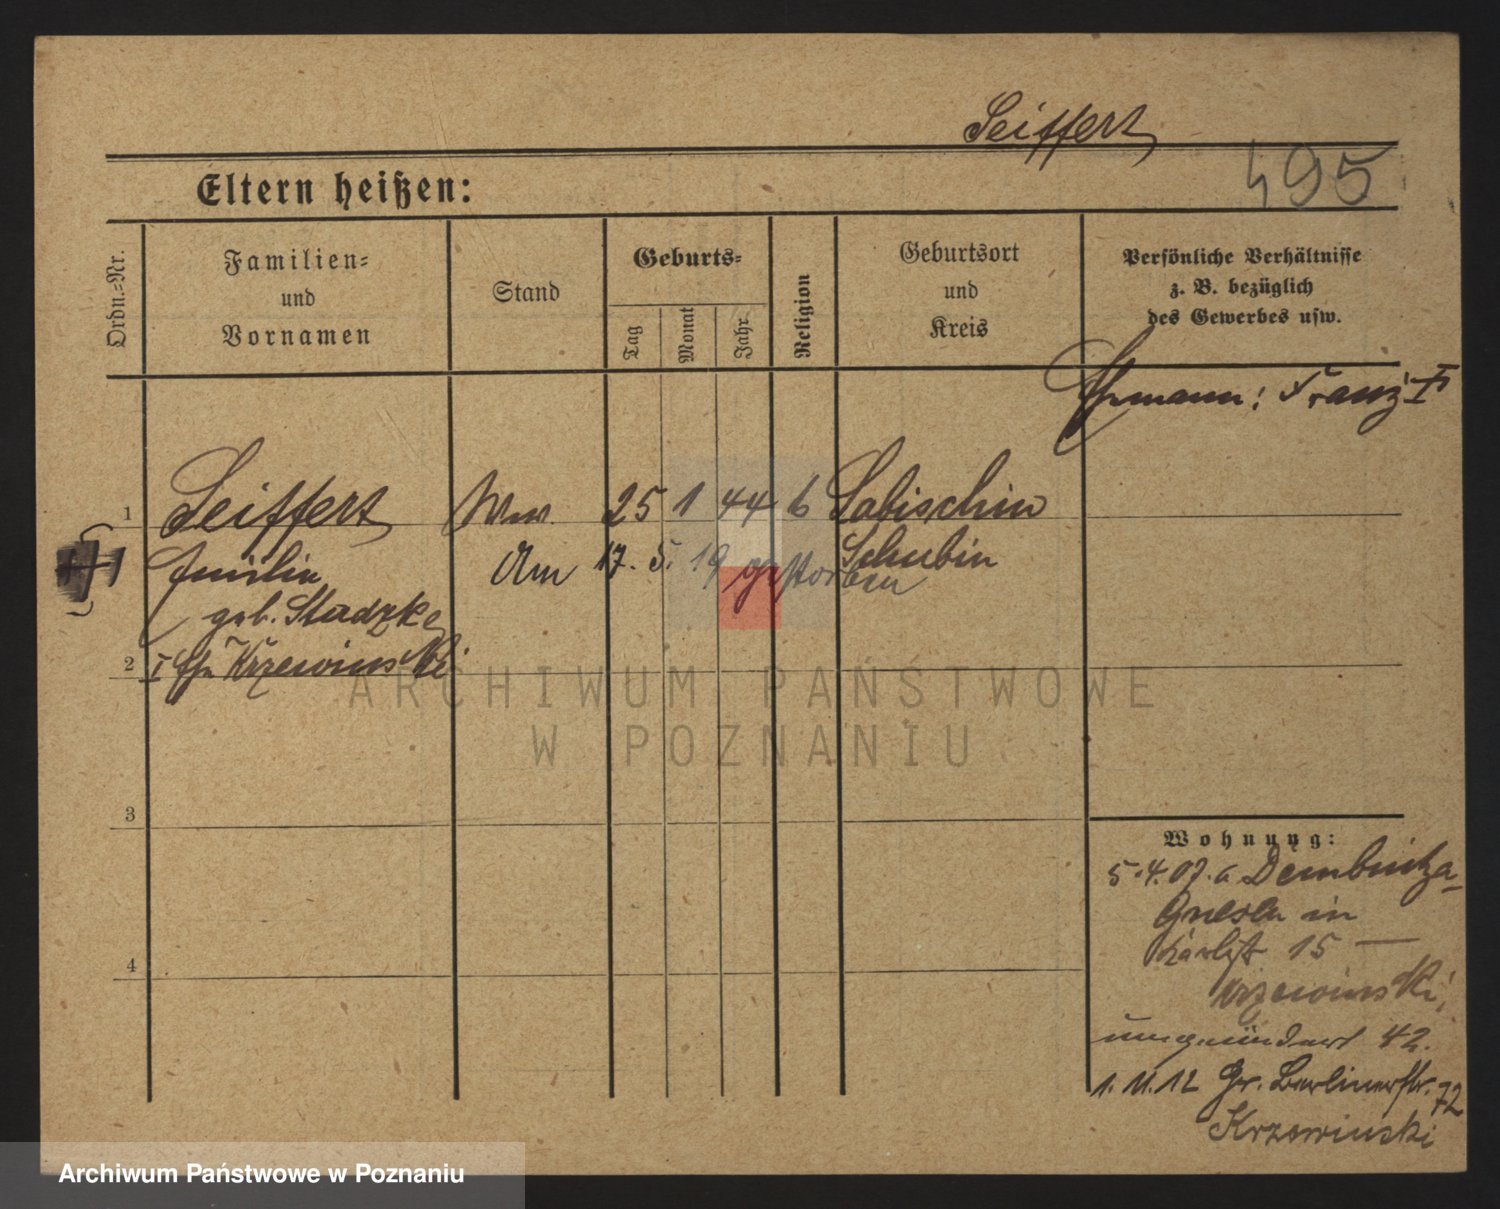 Seiffert
495
Eltern heißen:
Ordn.-Nr.
Familien-
und
Vornamen
Stand
Geburts-
Tag
Monat
Jahr
Religion
Geburtsort
und
Kreis
Persönliche Verhältnisse
z. B. bezüglich
des Gewerbes usw.
Ehmann: Franz †
1 Seiffert Ww. 25 1 44 k Labischin
Emilie Am 17. 5. 19 gestorben Schubin
geb. Stadzke
2 I Eh Krzewinski
ARCHIWUM PAŃSTWOWE
W POZNANIU
3
4
Wohnung:
5.4.07. a. Dembnitza-
Gnesen in
15 —
Krzewinski,
umgeändert 42.
1.11.12 Gr. Berlinerstr. 72
Krzewinski
Archiwum Państwowe w Poznaniu